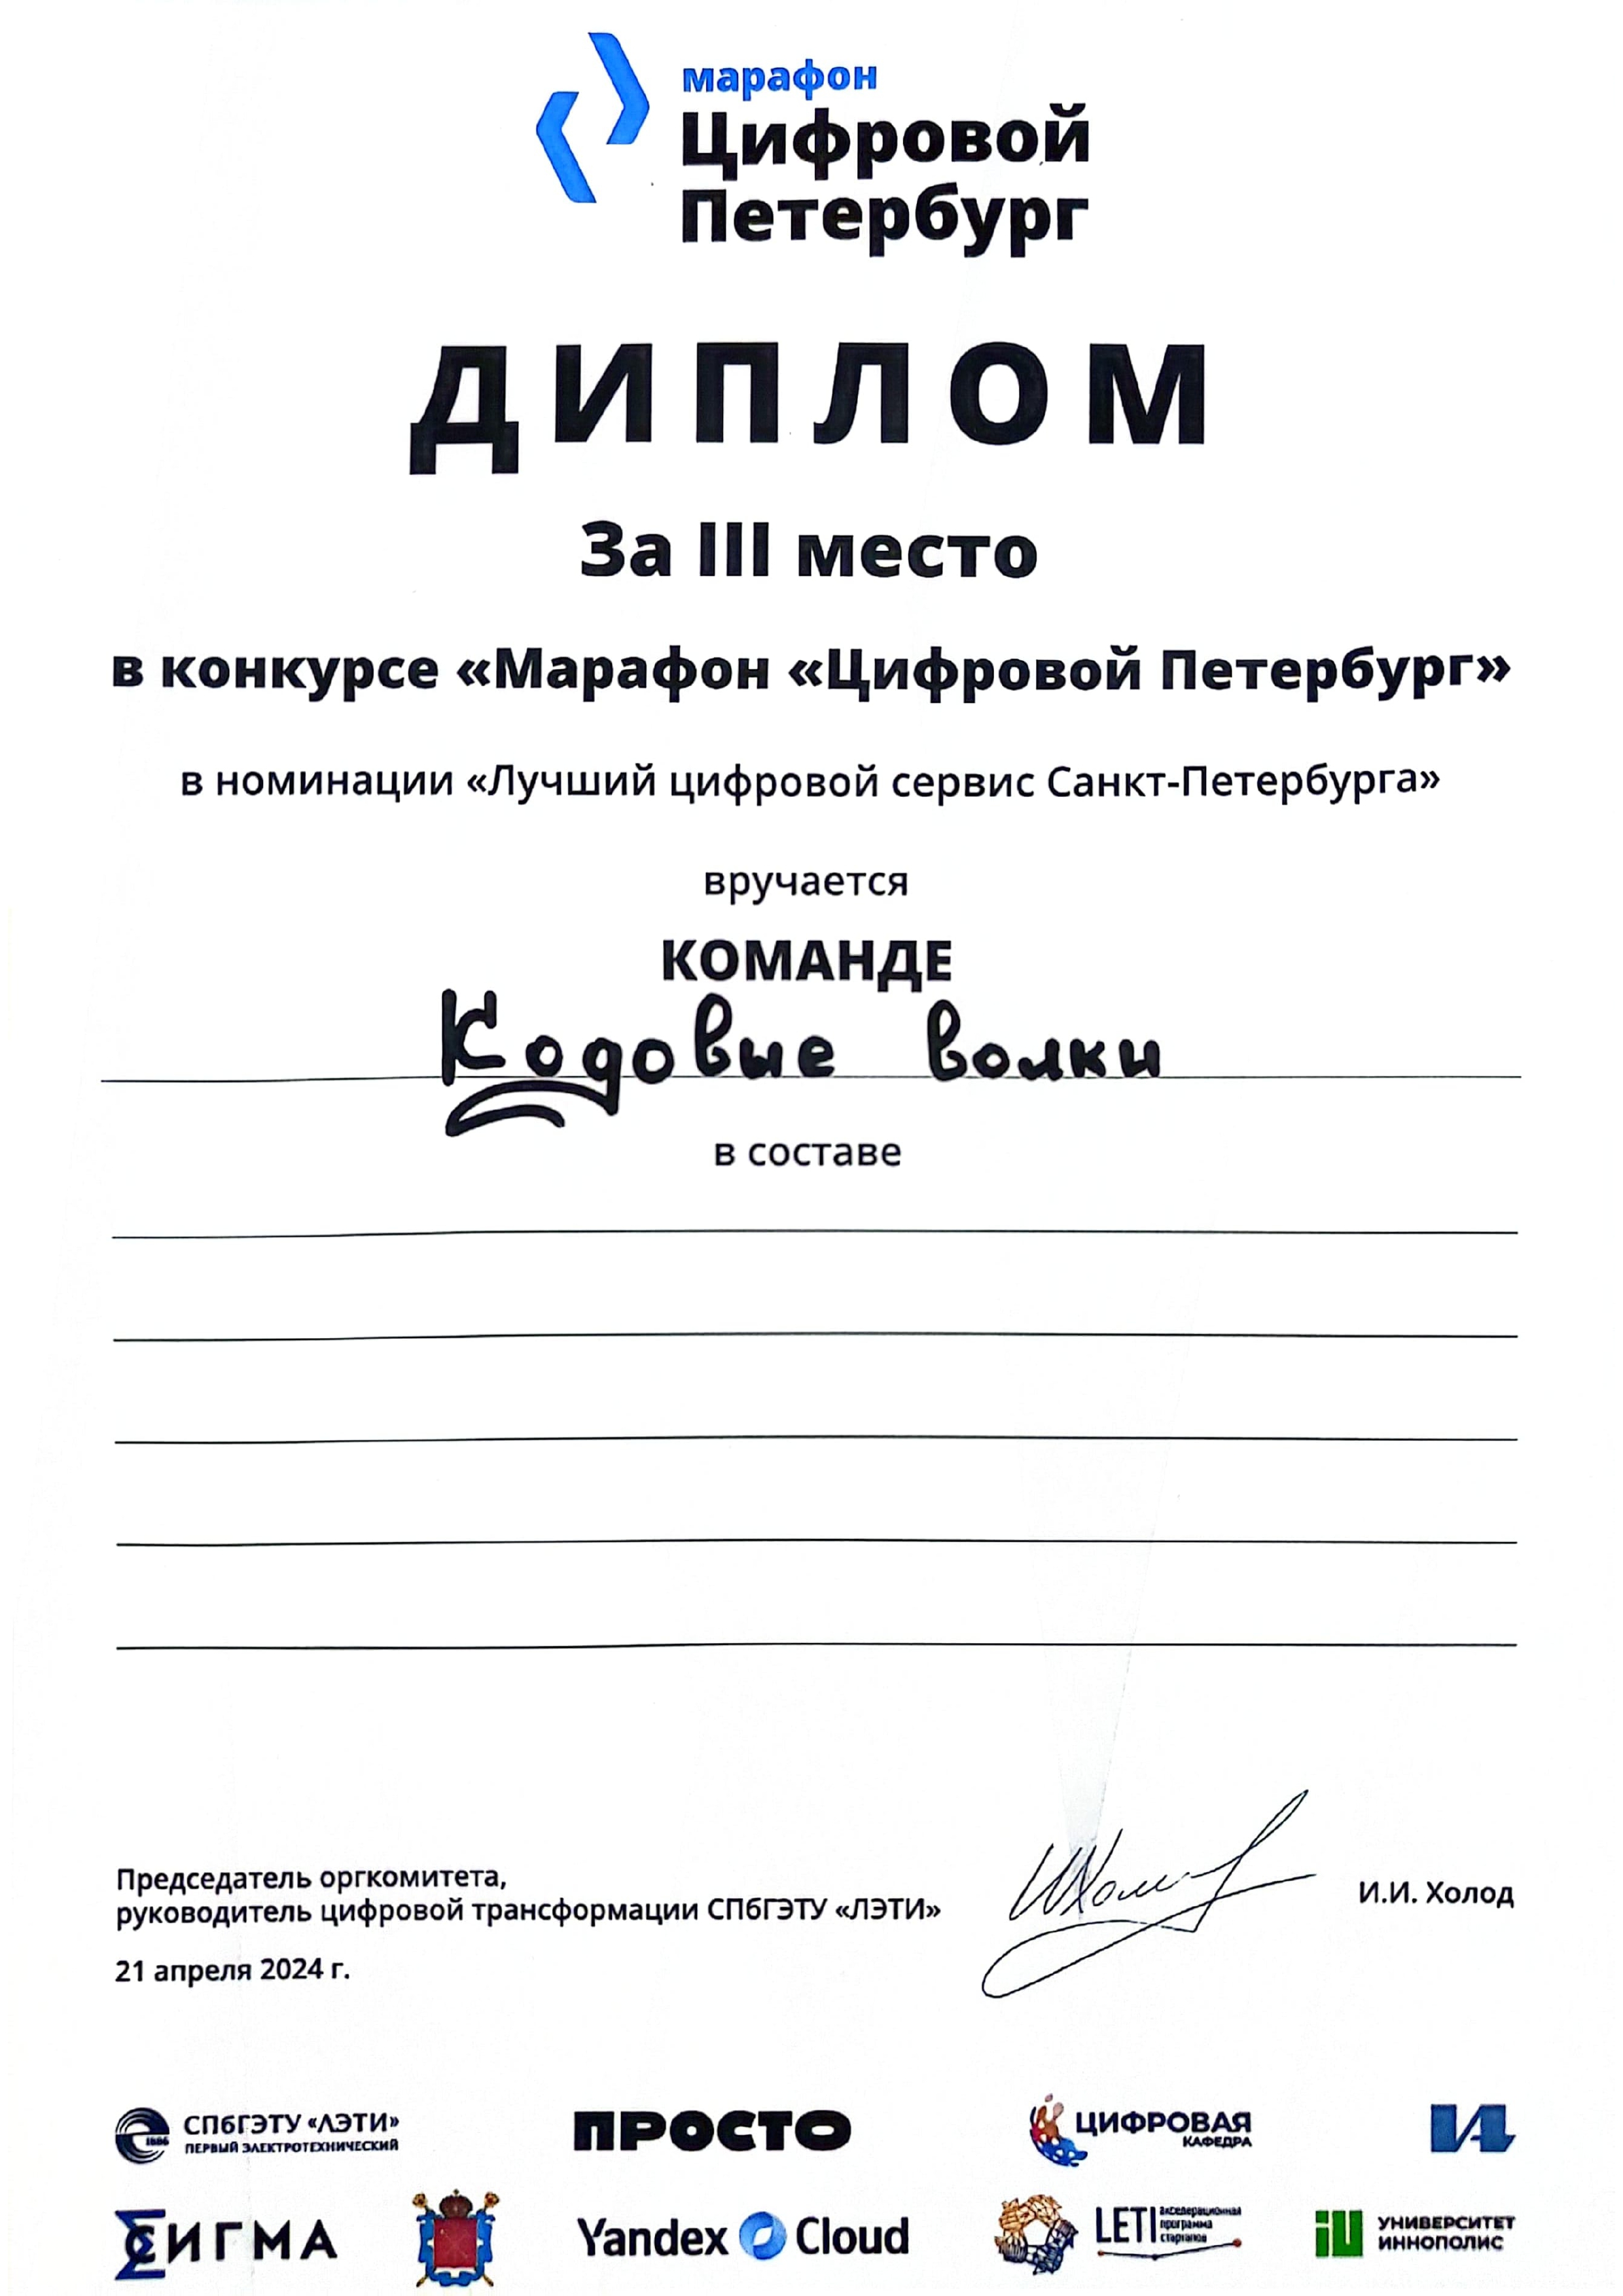 марафон
Цифровой
Петербург
ДИПЛОМ
За III место
в конкурсе «Марафон «Цифровой Петербург»
в номинации «Лучший цифровой сервис Санкт-Петербурга»
вручается
КОМАНДЕ
Кодовые волки
в составе
Председатель оргкомитета,
руководитель цифровой трансформации СПбГЭТУ «ЛЭТИ»
И.И. Холод
21 апреля 2024 г.
СПбГЭТУ «ЛЭТИ»
ПЕРВЫЙ ЭЛЕКТРОТЕХНИЧЕСКИЙ
1886
ПРОСТО
ЦИФРОВАЯ
КАФЕДРА
СИГМА
Yandex Cloud
LETI
акселерационная
программа
стартапов
УНИВЕРСИТЕТ
ИННОПОЛИС